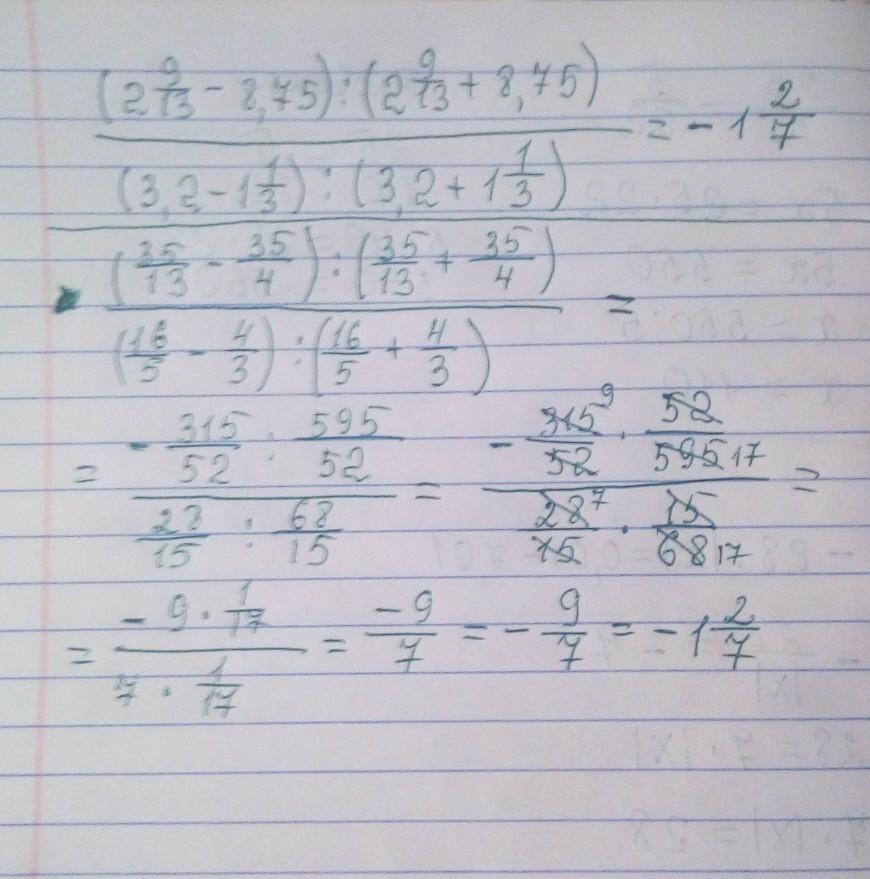 (2 9/13 - 8,75) : (2 9/13 + 8,75)
= - 1 2/7
(3,2 - 1 1/3) : (3,2 + 1 1/3)
(35/13 - 35/4) : (35/13 + 35/4)
=
(16/5 - 4/3) : (16/5 + 4/3)
= - 315/52 : 595/52
28/15 : 68/15
= - 315 9/52 · 52/595 17
28 7/15 · 15/68 17
=
= - 9 · 1/17
7 · 1/17
= -9/7 = - 9/7 = - 1 2/7